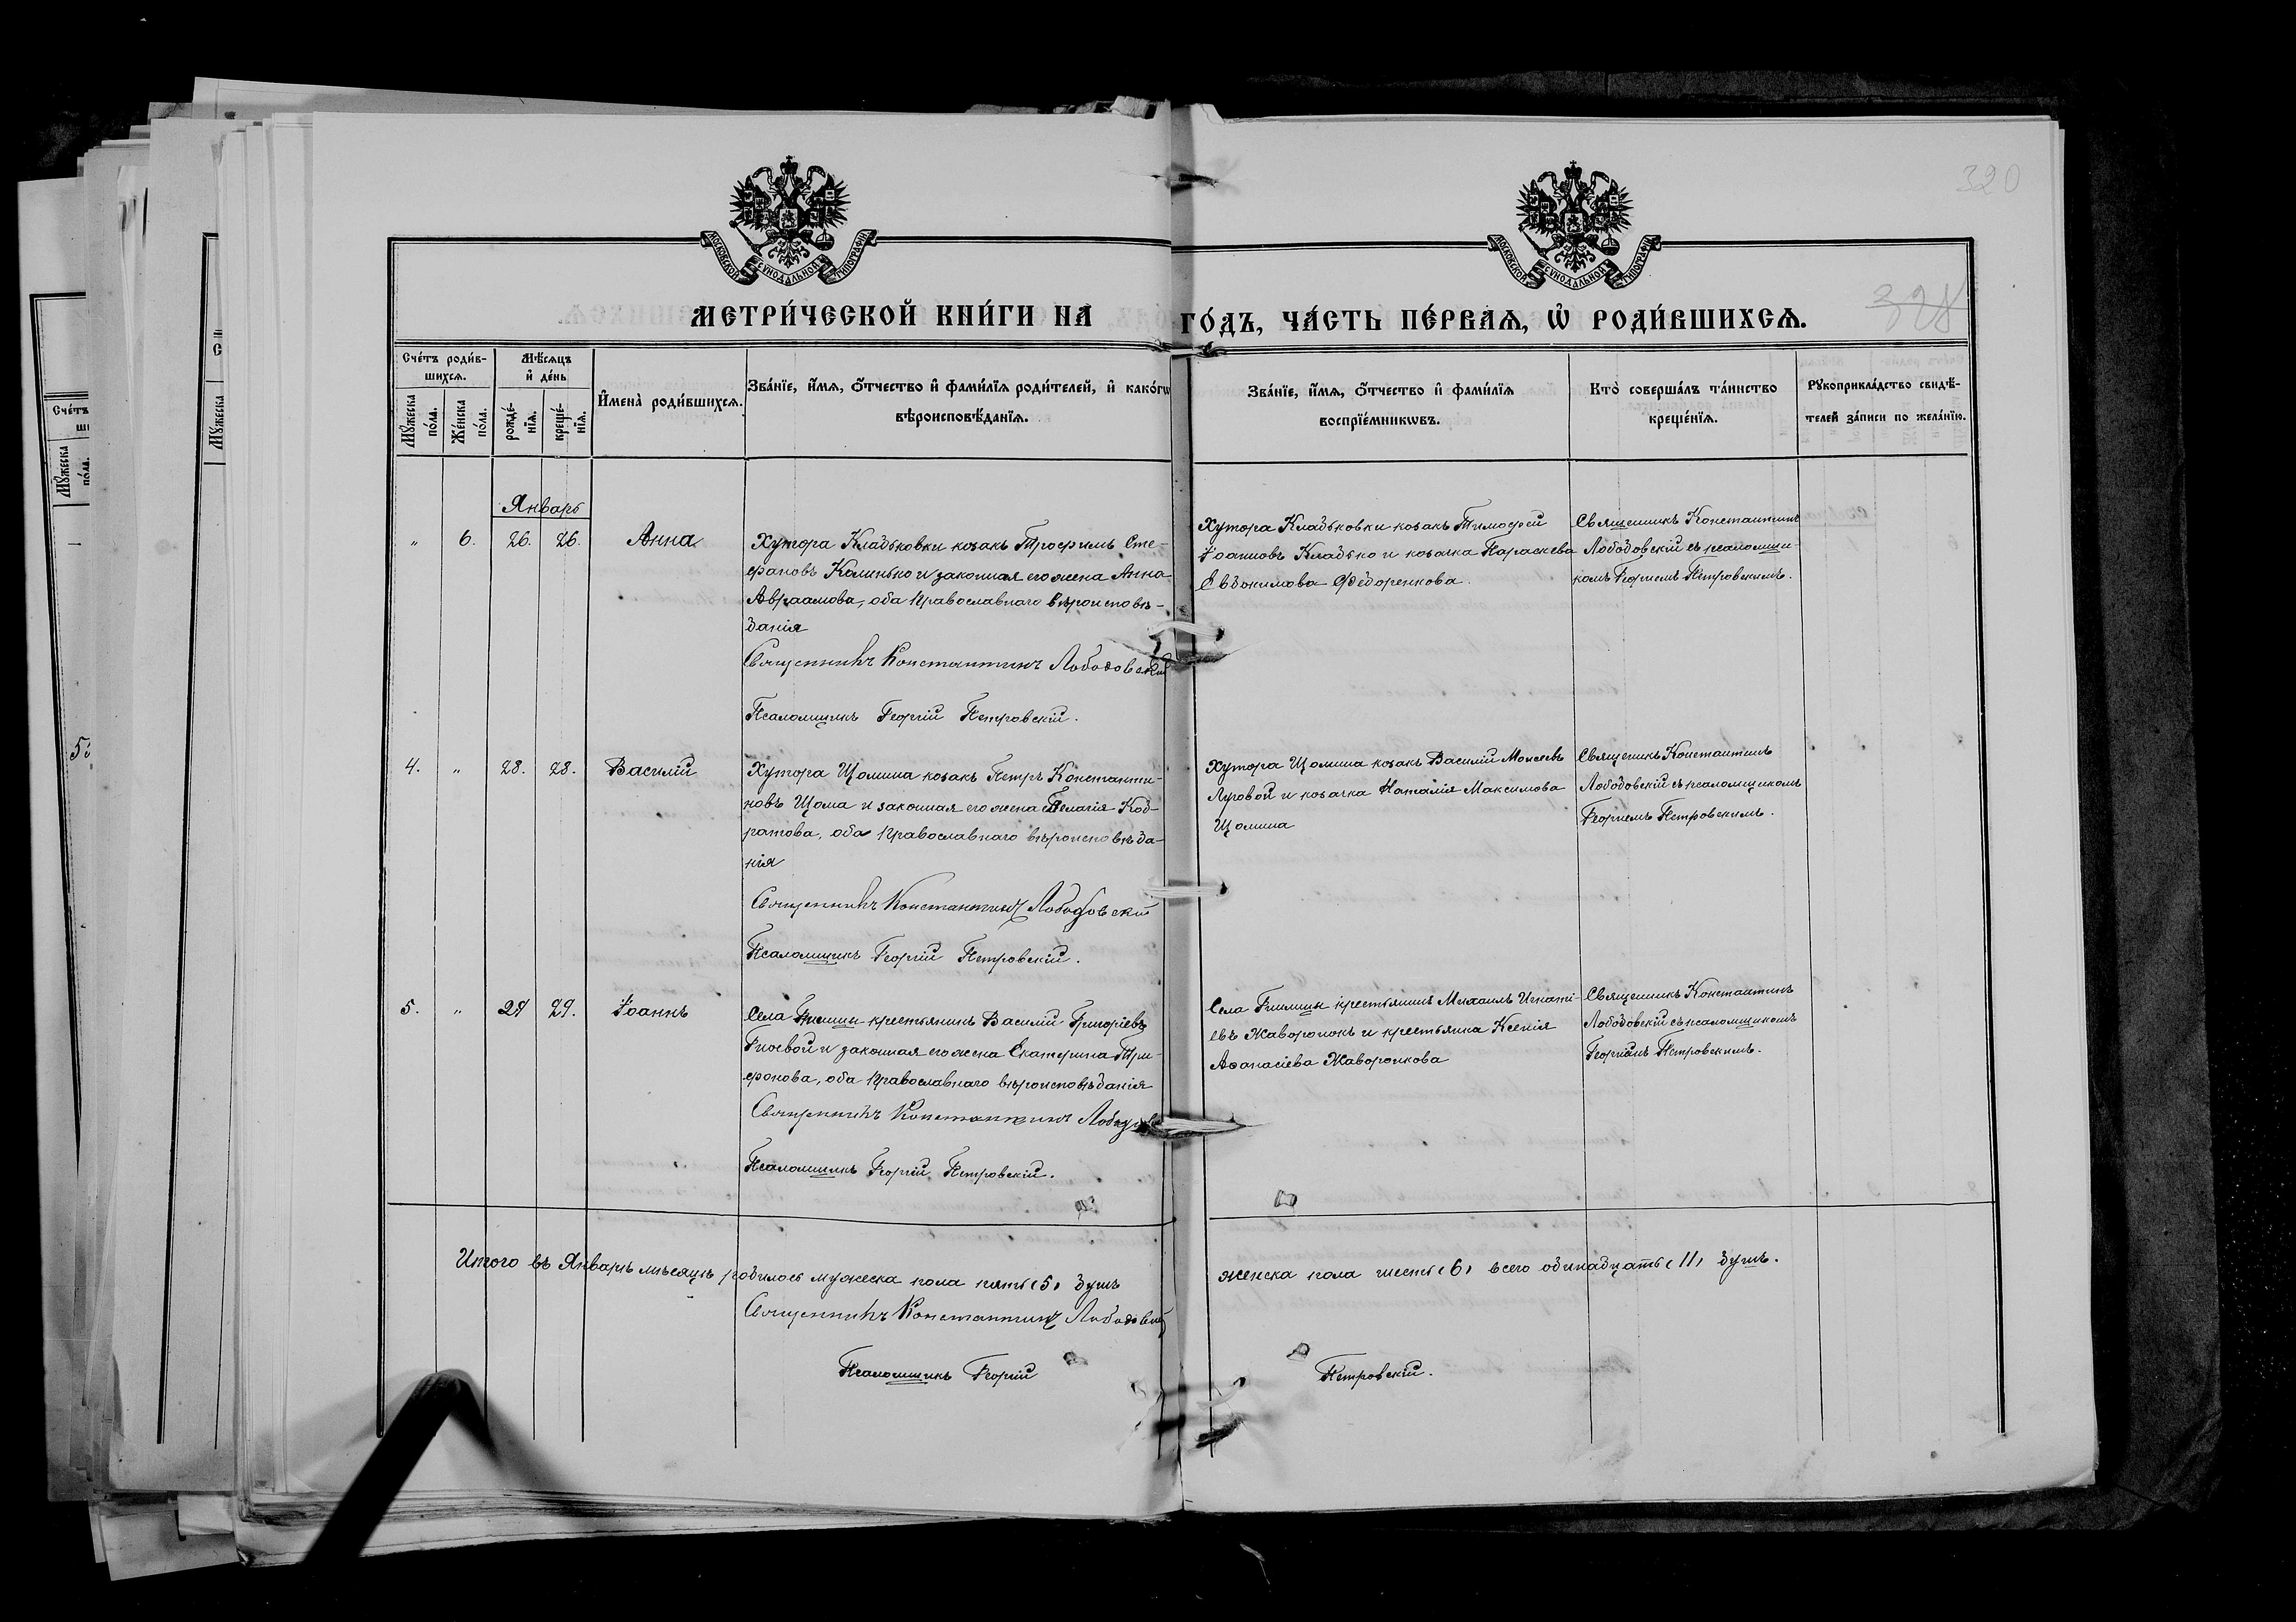 320
МОСКОВСКОЙ СѴНОДАЛЬНОЙ ТИПОГРАФІИ
МОСКОВСКОЙ СѴНОДАЛЬНОЙ ТИПОГРАФІИ
МЕТРИ́ЧЕСКОЙ КНИ́ГИ НА ГО́ДЪ, ЧА́СТЬ ПЕ́РВАѦ, Ѡ҆ РОДИ́ВШИХСѦ.
328
Сче́тъ роди́в-
шихсѧ.
Мѣ́сѧцъ
и҆ де́нь
Мꙋ́жеска
по́ла.
Же́нска
по́ла.
рожде́-
нїѧ.
креще́-
нїѧ.
И҆мена̀ роди́вшихсѧ.
Зва́нїе, и҆́мѧ, ѻ҆́тчество и҆ фами́лїѧ роди́телей, и҆ како́гѡ
вѣроисповѣ́данїѧ.
Зва́нїе, и҆́мѧ, ѻ҆́тчество и҆ фами́лїѧ
воспрїе́мникѡвъ.
Кто̀ соверша́лъ та́инство
креще́нїѧ.
Рꙋкоприкла́дство свидѣ́-
телей за́писи по жела́нїю.
Январь
„ 6. 26. 26. Анна
Хутора Кладьковки козакъ Трофимъ Сте-
фановъ Калинько и законная его жена Анна
Авраамова, оба православнаго вѣроисповѣ-
данія
Священникъ Константинъ Лободовскій
Псаломщикъ Георгій Петровскій.
Хутора Кладьковки козакъ Тимофей
Іоанновъ Кладько и козачка Параскева
Евдокимова Федоренкова.
Священникъ Константинъ
Лободовскій съ псаломщи-
комъ Георгіемъ Петровскимъ.
4. „ 28. 28. Василій
Хутора Щомина козакъ Петръ Константи-
новъ Щома и законная его жена Пелагія Код-
ратова, оба православнаго вѣроисповѣда-
нія
Священникъ Константинъ Лободовскій
Псаломщикъ Георгій Петровскій.
Хутора Щомина козакъ Василій Моисеевъ
Луговой и козачка Наталія Максимова
Щомина
Священикъ Константинъ
Лободовскій съ псаломщикомъ
Георгіемъ Петровскимъ.
5. „ 29 29. Іоаннъ
Села крестьянинъ Василій Григоріевъ
Гноевой и законная его жена Екатерина Три-
фонова, оба православнаго вѣроисповѣданія
Священникъ Константинъ
Псаломщикъ Георгій Петровскій.
Села крестьянинъ Михаилъ Игнаті-
евъ Жаворонокъ и крестьянка Ксенія
Аѳанасіева Жаворонкова
Священникъ Константинъ
Лободовскій съ псаломщикомъ
Георгіемъ Петровскимъ.
Итого въ Январѣ мѣсяцѣ родилось мужеска пола пять (5) душъ женска пола шесть (6) всего одинадцать (11) душъ.
Священникъ Константинъ
Псаломщикъ Георгій Петровскій.